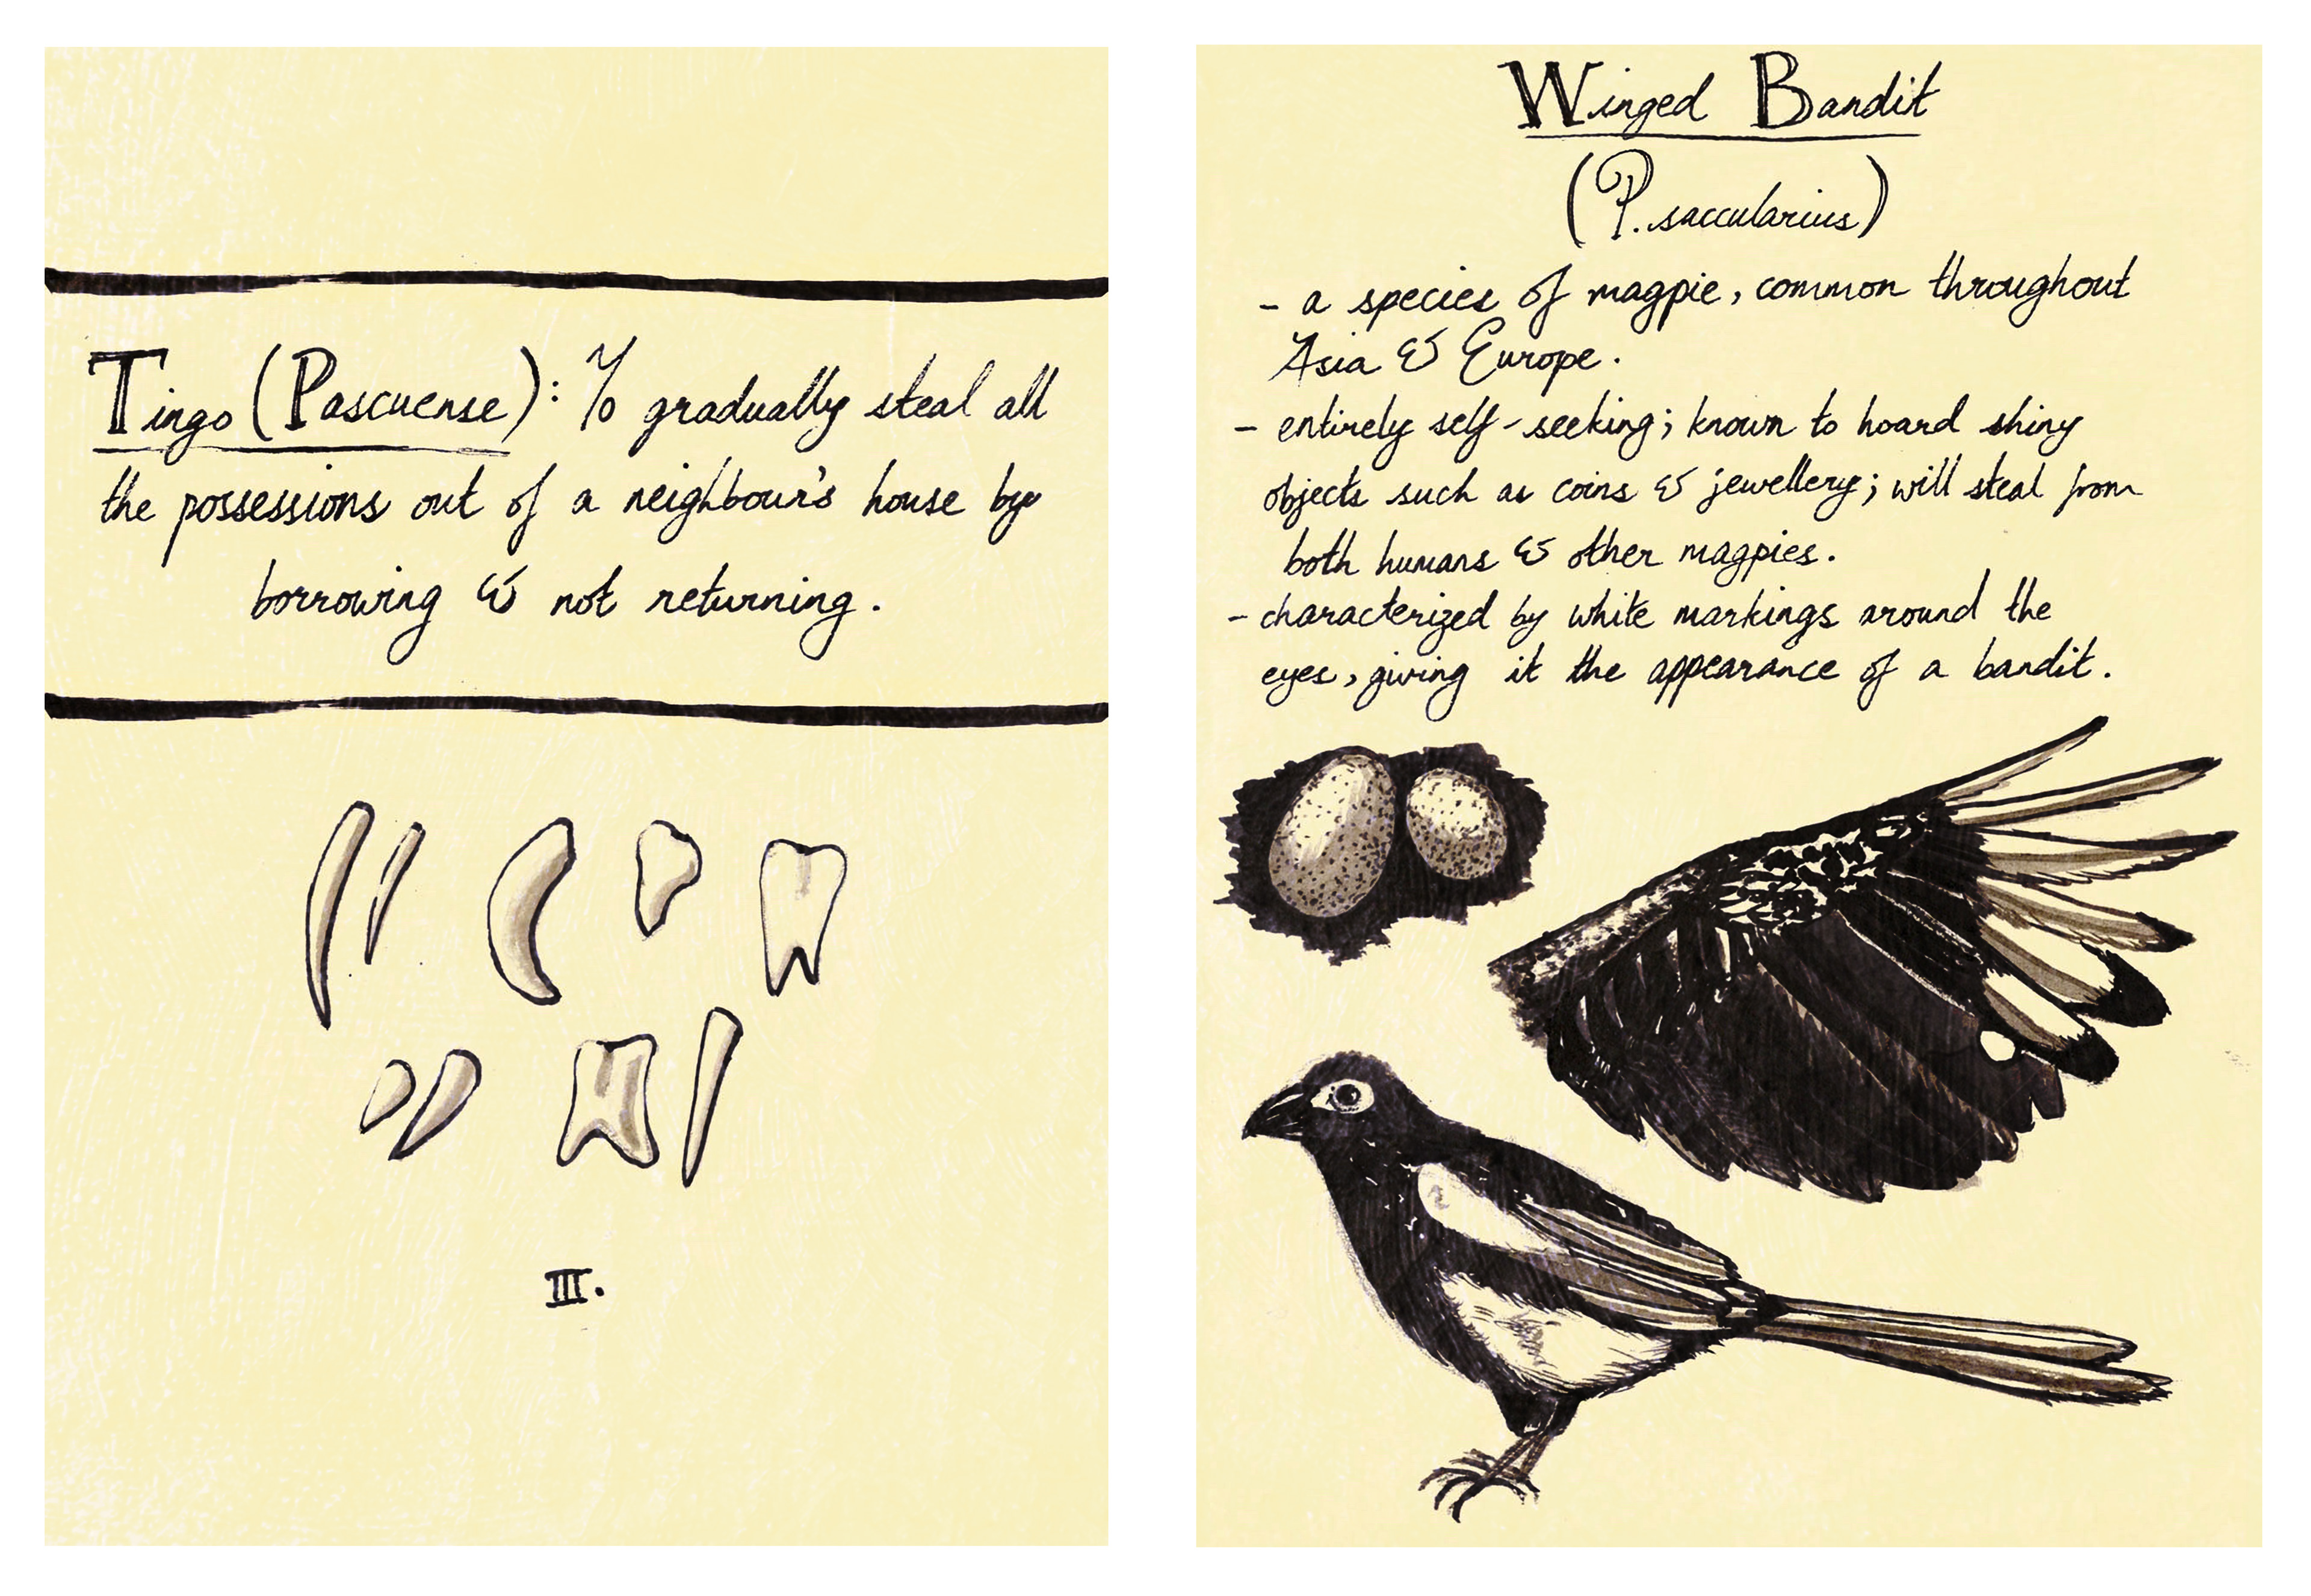 Tingo (Pascuense): To gradually steal all
the possessions out of a neighbour's house by
borrowing & not returning.
III.
Winged Bandit
(P. saccularius)
- a species of magpie, common throughout
Asia & Europe.
- entirely self-seeking; known to hoard shiny
objects such as coins & jewellery; will steal from
both humans & other magpies.
- characterized by white markings around the
eyes, giving it the appearance of a bandit.